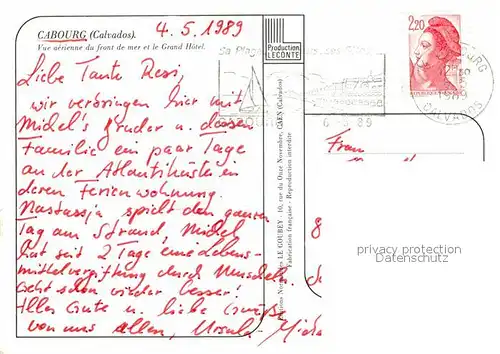 CABOURG (Calvados).
4.5.1989
Vue aérienne du front de mer et le Grand Hôtel.
Liebe Tante Resi,
wir verbringen hier mit
Michel's Bruder u. dessen
Familie ein paar Tage
an der Atlantikküste in
deren Ferienwohnung.
Nastassja spielt den ganzen
Tag am Strand, Michel
hat seit 2 Tage eine Lebens-
mittelvergiftung durch Muscheln
geht schon wieder besser!
Alles Gute u. liebe Grüße
von uns allen, Ursula
Production
LECONTE
LE GOUBEY - 10, rue du Onze Novembre, CAEN (Calvados)
Fabrication française - Reproduction interdite
2,20
CALVADOS
6-5 89
Frau
privacy protection
Datenschutz